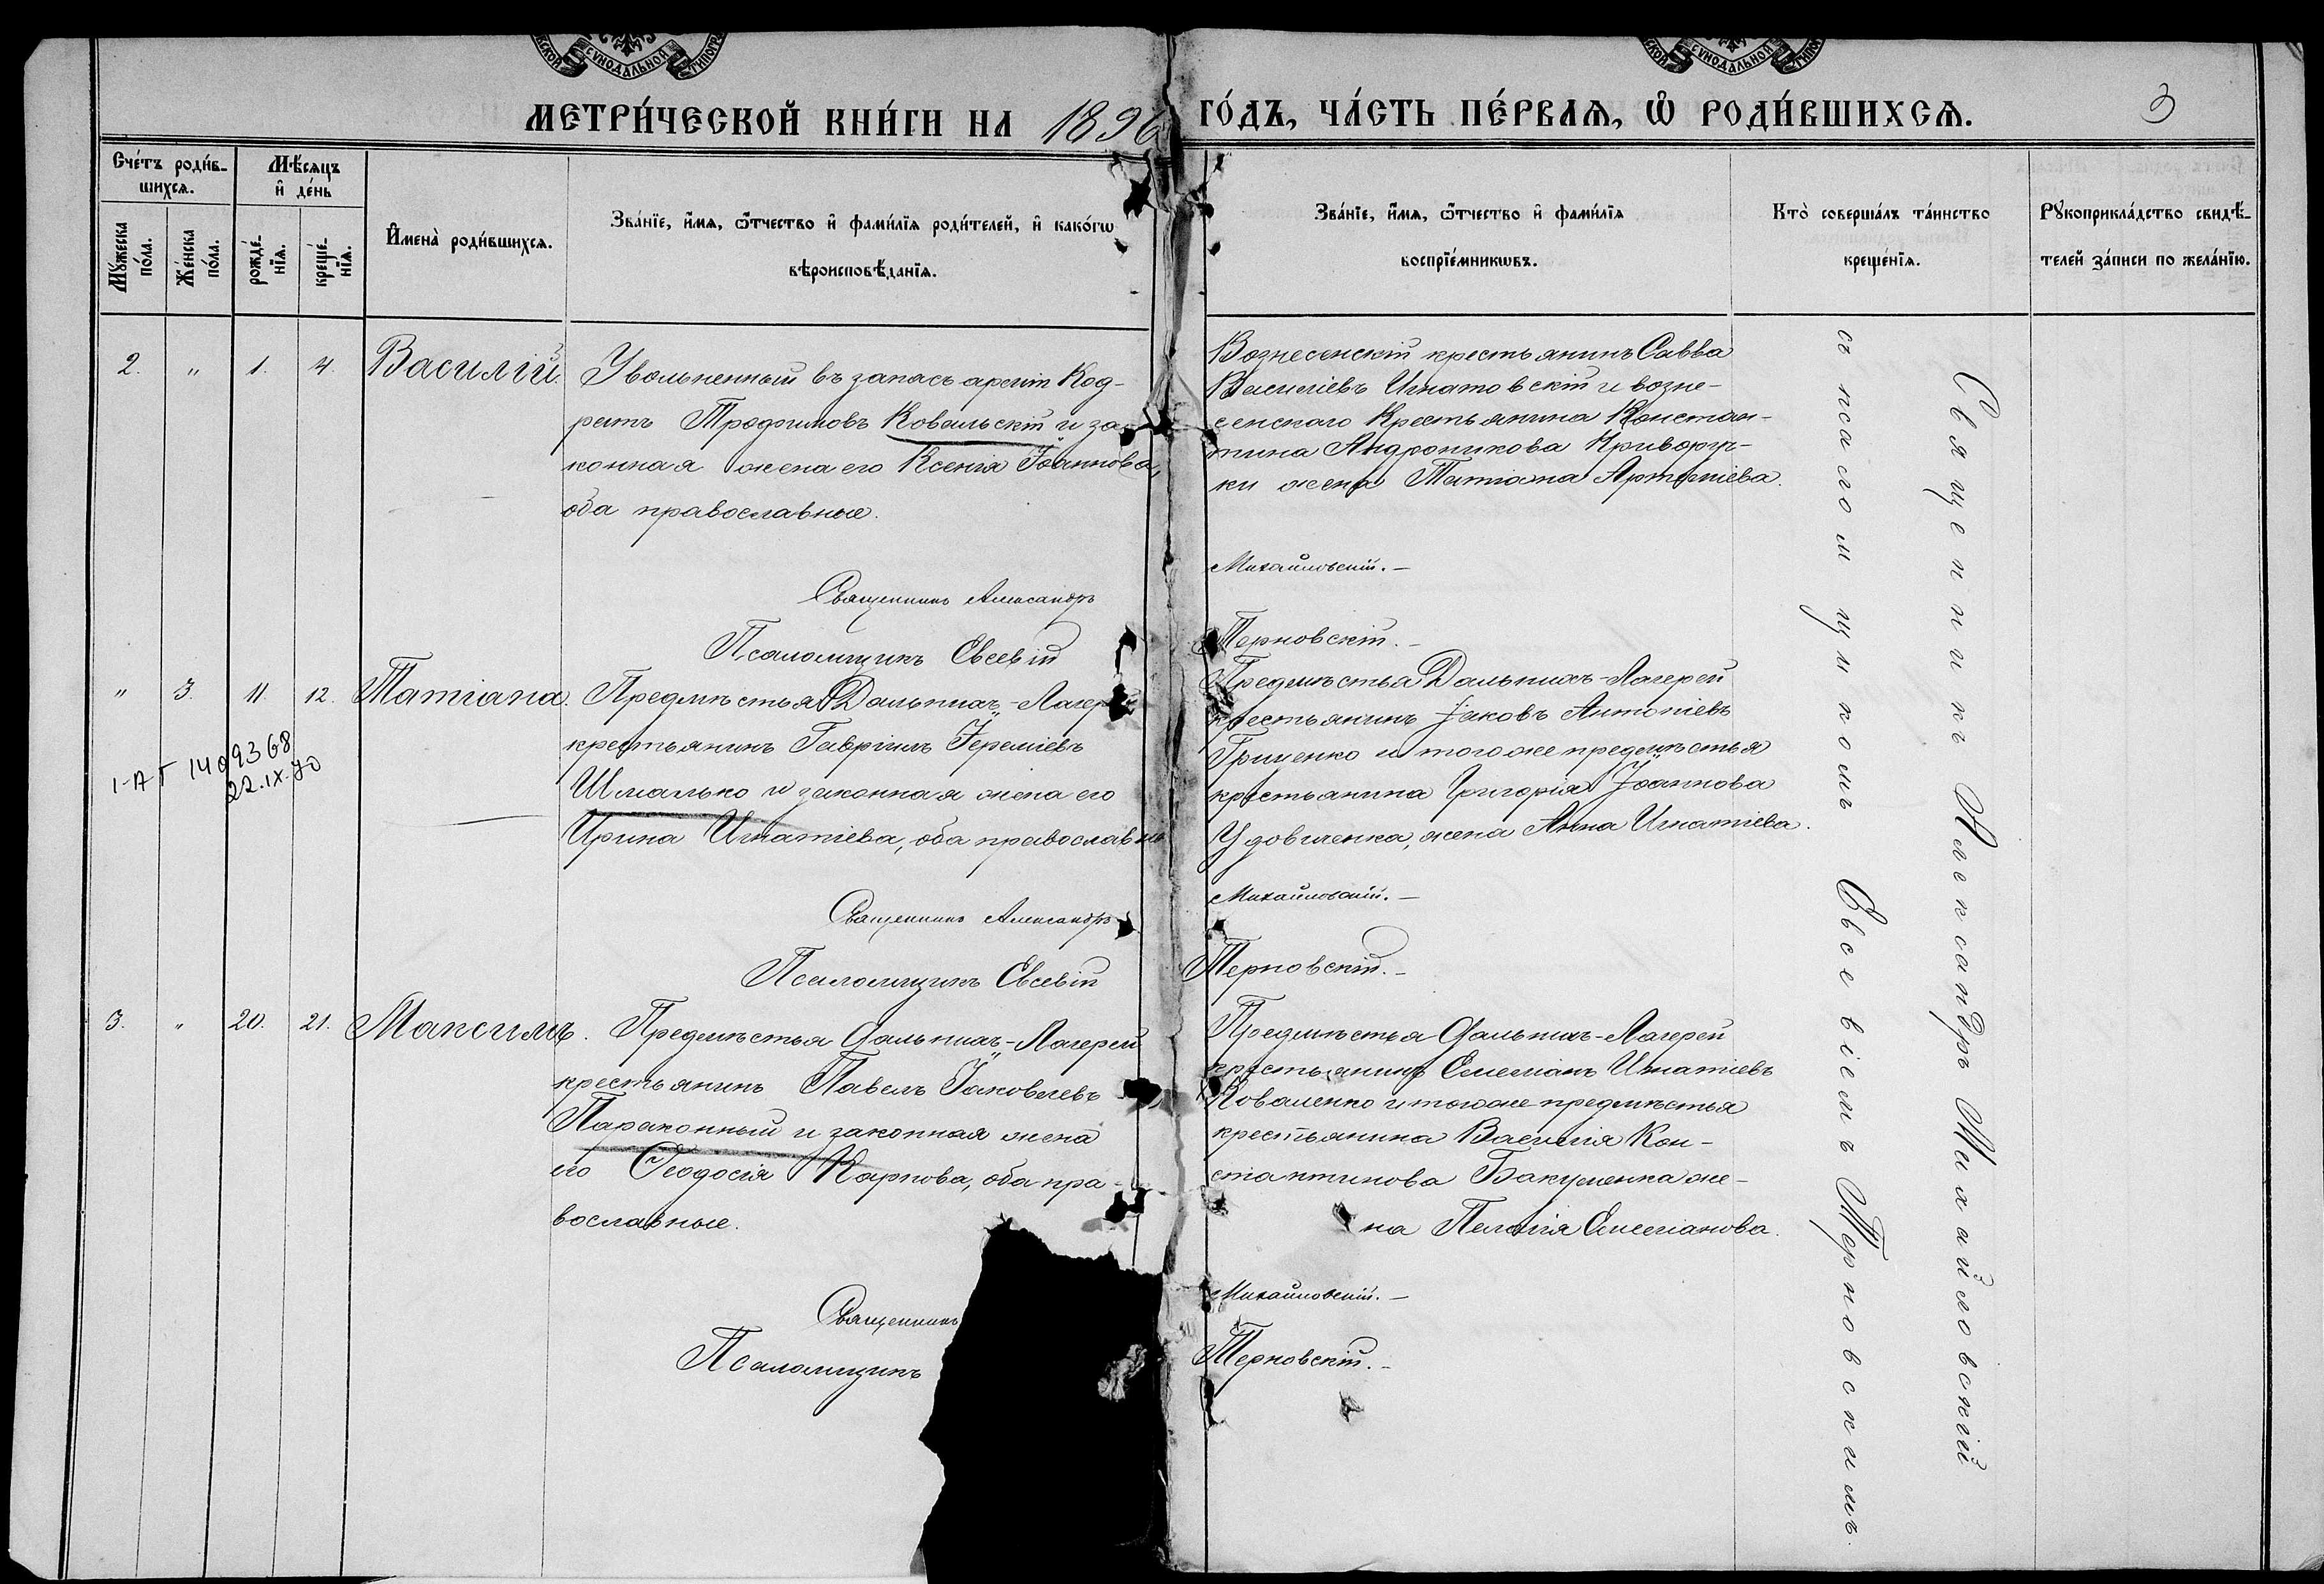 СУНОДАЛЬНОЙ
СУНОДАЛЬНОЙ
МЕТРИ́ЧЕСКОЙ КНИ́ГИ НА 1896 ГО́ДЪ, ЧА́СТЬ ПЕ́РВАѦ, Ѡ҆ РОДИ́ВШИХСѦ.
3
Сче́тъ роди́в-
шихсѧ.
Мѣ́сѧцъ
и҆ де́нь
Мꙋ́жеска по́ла.
Же́нска по́ла.
рожде́-
нїѧ.
креще́-
нїѧ.
И҆мена̀ роди́вшихсѧ.
Зва́нїе, и҆́мѧ, ѻ҆́тчество и҆ фами́лїѧ роди́телей, и҆ како́гѡ
вѣроисповѣ́данїѧ.
Зва́нїе, и҆́мѧ, ѻ҆́тчество и҆ фами́лїѧ
воспрїе́мникѡвъ.
Кто̀ соверша́лъ та́инство
креще́нїѧ.
Рꙋкоприкла́дство свидѣ́-
телей за́писи по жела́нїю.
2. " 1. 4. Василій.
Увольненный въ запасъ армiи Код-
ратъ Трофимовъ Ковальскій и за-
конная жена его Ксенія Іоаннова,
оба православные.
Священникъ Александръ
Псаломщикъ Евсевій
Вознесенскій крестьянинъ Савва
Василіевъ Игнатовскій и возне-
сенскаго Крестьянина Констан-
тина Андроникова Криворуч-
ки жена Татіана Артеміева.
Михайловскій. –
Терновскій. –
" 3. 11. 12. Татіана.
1-АГ 1409368
22.IX.70
Предмѣстья Дальнихъ-Лагерей
крестьянинъ Гавріилъ Іереміевъ
Шмалько и законная жена его
Ирина Игнатіева, оба православны
Священникъ Александръ
Псаломщикъ Евсевій
Предмѣстья Дальнихъ-Лагерей
крестьянинъ Іаковъ Антоніевъ
Гриценко и того же предмѣстья
крестьянина Григорія Іоаннова
Удовиченка, жена Анна Игнатіева.
Михайловскій. –
Терновскій. –
3. " 20. 21. Максимъ.
Предмѣстья Дальнихъ-Лагерей
крестьянинъ Павелъ Іаковлевъ
Параконный и законная жена
его Ѳеодосія Карпова, оба пра-
вославные.
Священникъ
Псаломщикъ
Предмѣстья Дальнихъ-Лагерей
крестьянинъ Емеліанъ Игнатіевъ
Коваленко и того же предмѣстья
крестьянина Василія Кон-
стантинова Бакуменка же-
на Пелагія Емеліанова.
Михайловскій. –
Терновскій. –
Священникъ Александръ Михайловскій
съ псаломщикомъ Евсевіемъ Терновскимъ.